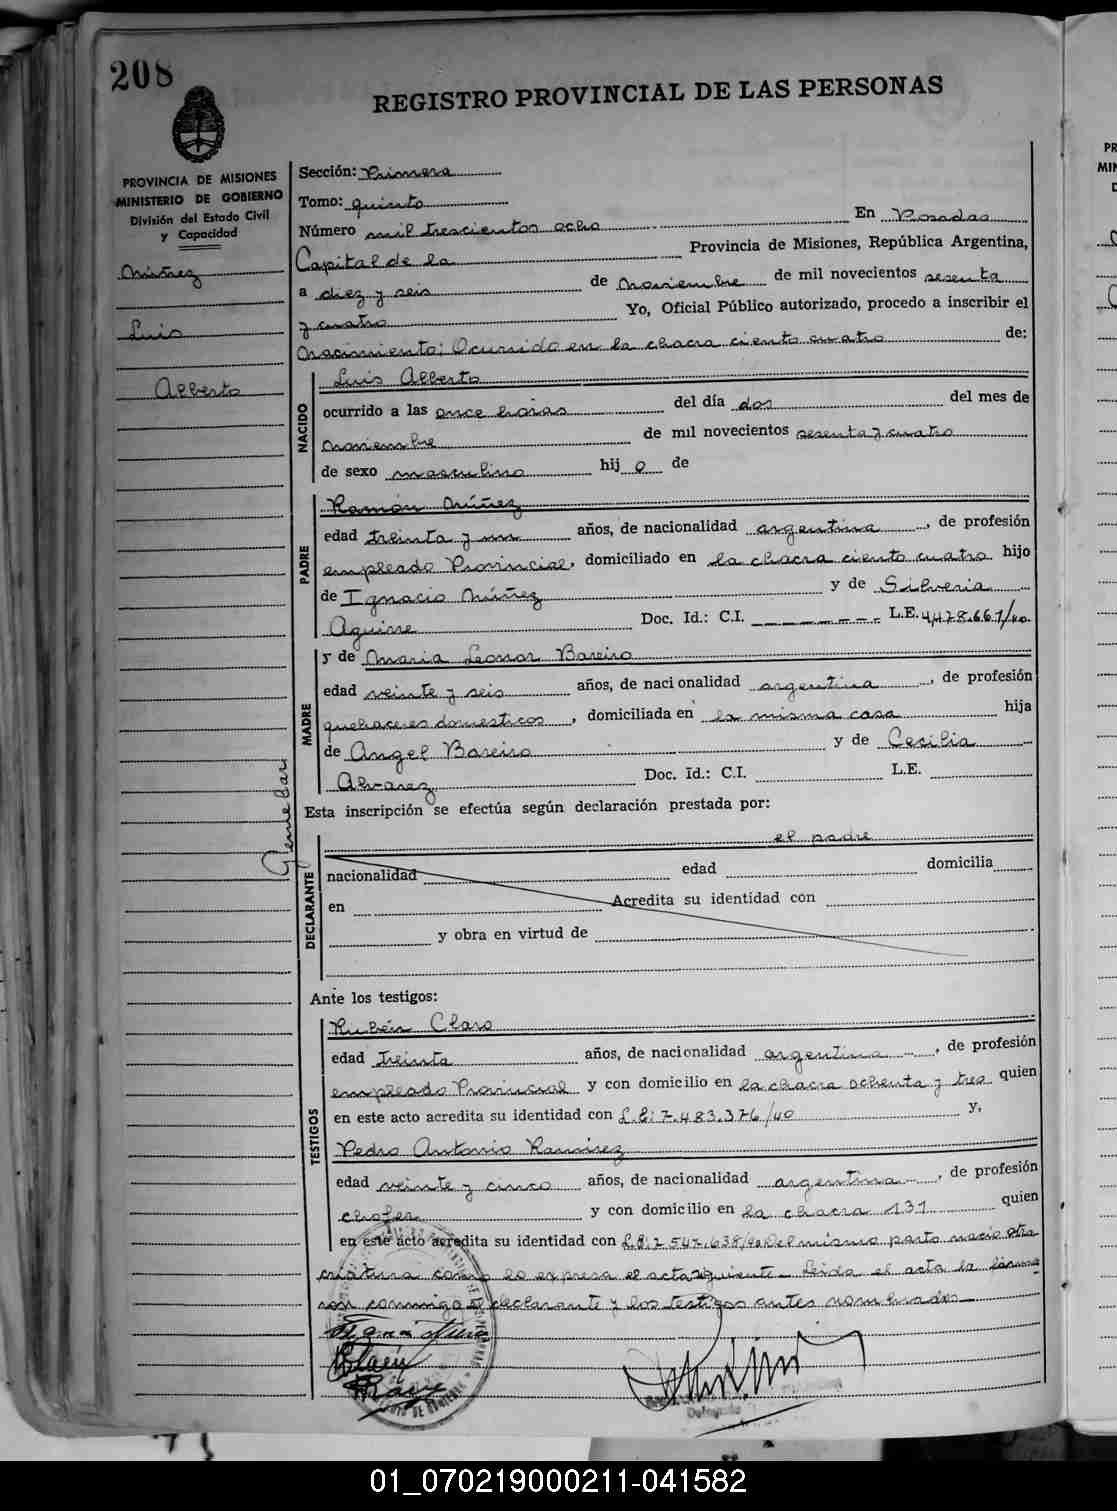 208
REGISTRO PROVINCIAL DE LAS PERSONAS
PROVINCIA DE MISIONES
MINISTERIO DE GOBIERNO
División del Estado Civil
y Capacidad
Núñez
Luis
Alberto
Gemelar
Sección: Primera
Tomo: quinto
Número mil trescientos ocho En Posadas
Capital de la Provincia de Misiones, República Argentina,
a diez y seis de Noviembre de mil novecientos sesenta
y cuatro Yo, Oficial Público autorizado, procedo a inscribir el
Nacimiento: Ocurrido en la chacra ciento cuatro de:
NACIDO
Luis Alberto
ocurrido a las once horas del día dos del mes de
Noviembre de mil novecientos sesenta y cuatro
de sexo masculino hij o de
PADRE
Ramón Núñez
edad treinta y un años, de nacionalidad argentina, de profesión
empleado Provincial, domiciliado en la chacra ciento cuatro hijo
de Ignacio Núñez y de Silveria
Aguirre Doc. Id.: C.I. -------- L.E. 4.478.661/40.
MADRE
y de Maria Leonor Bareiro
edad veinte y seis años, de nacionalidad argentina, de profesión
quehaceres domesticos, domiciliada en la misma casa hija
de Angel Bareiro y de Cecilia
Alvarez Doc. Id.: C.I. L.E.
Esta inscripción se efectúa según declaración prestada por:
DECLARANTE
el padre
nacionalidad edad domicilia
en Acredita su identidad con
y obra en virtud de
Ante los testigos:
TESTIGOS
Rubén Claro
edad treinta años, de nacionalidad argentina, de profesión
empleado Provincial y con domicilio en la chacra ochenta y tres quien
en este acto acredita su identidad con L.E: 7.483.376/40 y,
Pedro Antonio Ramirez
edad veinte y cinco años, de nacionalidad argentina, de profesión
chofer y con domicilio en la chacra 131 quien
en este acto acredita su identidad con L.E: 7.547.638/40 Del mismo parto nació otra
criatura como lo expresa el acta siguiente. Leida el acta la firman
con conmigo el declarante y los testigos antes nombrados
Delegado
01_070219000211-041582